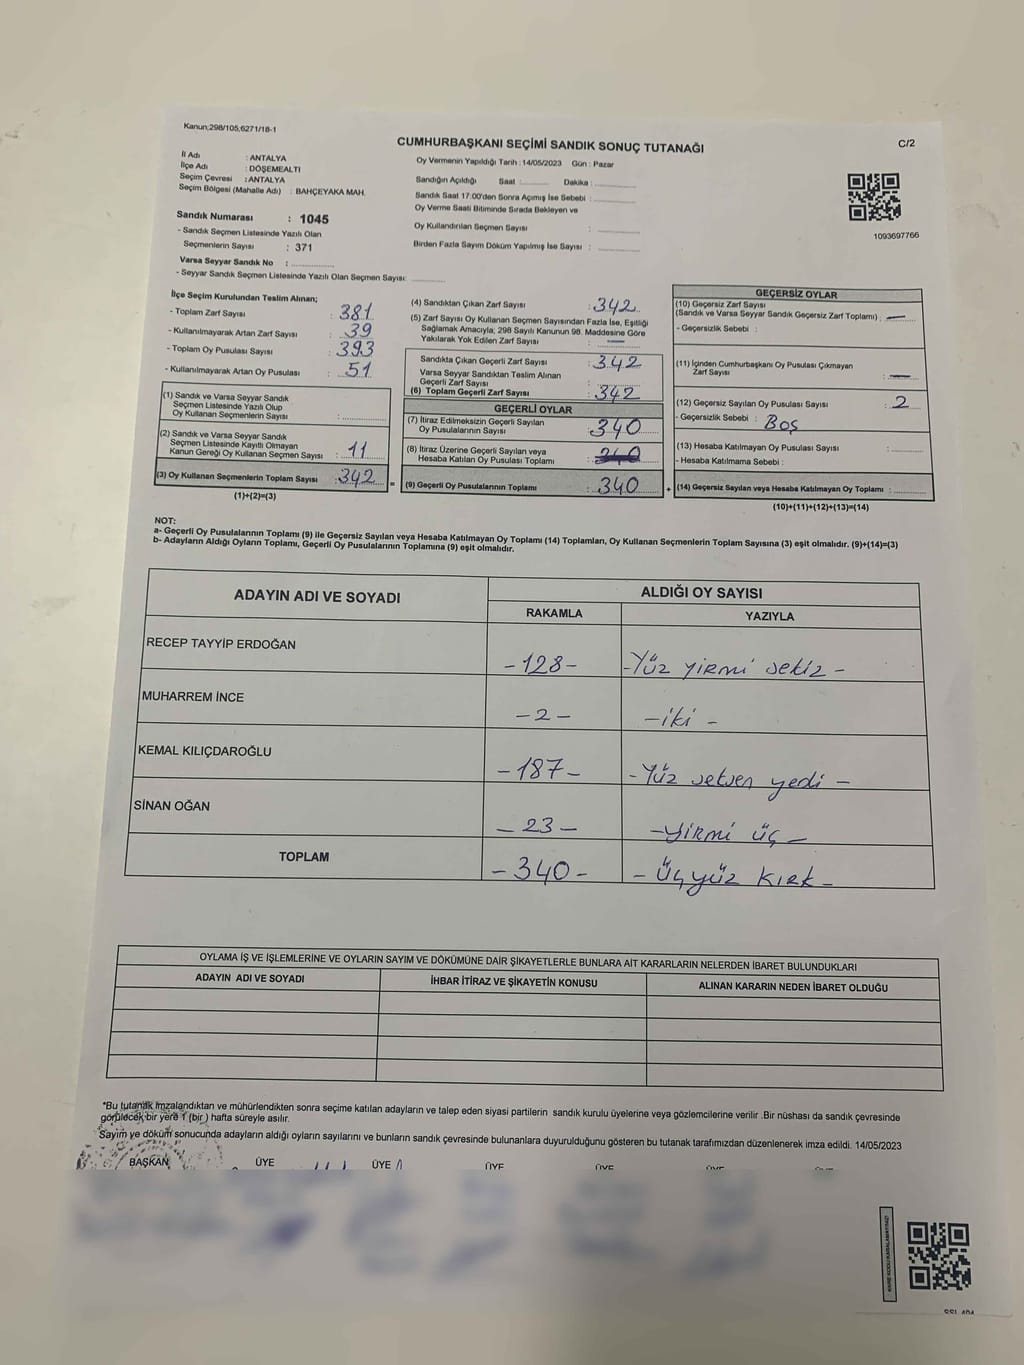 Kanun;298/105;6271/18-1
CUMHURBAŞKANI SEÇİMİ SANDIK SONUÇ TUTANAĞI
C/2
İl Adı : ANTALYA
İlçe Adı : DÖŞEMEALTI
Seçim Çevresi : ANTALYA
Seçim Bölgesi (Mahalle Adı) : BAHÇEYAKA MAH.
Sandık Numarası : 1045
- Sandık Seçmen Listesinde Yazılı Olan
Seçmenlerin Sayısı : 371
Varsa Seyyar Sandık No :
- Seyyar Sandık Seçmen Listesinde Yazılı Olan Seçmen Sayısı:
Oy Vermenin Yapıldığı Tarih : 14/05/2023 Gün : Pazar
Sandığın Açıldığı Saat : Dakika :
Sandık Saat 17:00'den Sonra Açımış İse Sebebi :
Oy Verme Saati Bitiminde Sırada Bekleyen ve
Oy Kullandırılan Seçmen Sayısı :
Birden Fazla Sayım Döküm Yapılmış İse Sayısı :
1093697766
İlçe Seçim Kurulundan Teslim Alınan;
- Toplam Zarf Sayısı : 381
- Kullanılmayarak Artan Zarf Sayısı : 39
- Toplam Oy Pusulası Sayısı : 393
- Kullanılmayarak Artan Oy Pusulası : 51
(1) Sandık ve Varsa Seyyar Sandık
Seçmen Listesinde Yazılı Olup
Oy Kullanan Seçmenlerin Sayısı :
(2) Sandık ve Varsa Seyyar Sandık
Seçmen Listesinde Kayıtlı Olmayan
Kanun Gereği Oy Kullanan Seçmen Sayısı : 11
(3) Oy Kullanan Seçmenlerin Toplam Sayısı : 342
(1)+(2)=(3)
(4) Sandıktan Çıkan Zarf Sayısı : 342
(5) Zarf Sayısı Oy Kullanan Seçmen Sayısından Fazla İse, Eşitliği
Sağlamak Amacıyla; 298 Sayılı Kanunun 98. Maddesine Göre
Yakılarak Yok Edilen Zarf Sayısı : —
Sandıkta Çıkan Geçerli Zarf Sayısı : 342
Varsa Seyyar Sandıktan Teslim Alınan
Geçerli Zarf Sayısı :
(6) Toplam Geçerli Zarf Sayısı : 342
GEÇERLİ OYLAR
(7) İtiraz Edilmeksizin Geçerli Sayılan
Oy Pusulalarının Sayısı : 340
(8) İtiraz Üzerine Geçerli Sayılan veya
Hesaba Katılan Oy Pusulası Toplamı : 340
= (9) Geçerli Oy Pusulalarının Toplamı : 340
GEÇERSİZ OYLAR
(10) Geçersiz Zarf Sayısı
(Sandık ve Varsa Seyyar Sandık Geçersiz Zarf Toplamı) : —
- Geçersizlik Sebebi :
(11) İçinden Cumhurbaşkanı Oy Pusulası Çıkmayan
Zarf Sayısı : —
(12) Geçersiz Sayılan Oy Pusulası Sayısı : 2
- Geçersizlik Sebebi : Boş
(13) Hesaba Katılmayan Oy Pusulası Sayısı :
- Hesaba Katılmama Sebebi :
+ (14) Geçersiz Sayılan veya Hesaba Katılmayan Oy Toplamı :
(10)+(11)+(12)+(13)=(14)
NOT:
a- Geçerli Oy Pusulalarının Toplamı (9) ile Geçersiz Sayılan veya Hesaba Katılmayan Oy Toplamı (14) Toplamları, Oy Kullanan Seçmenlerin Toplam Sayısına (3) eşit olmalıdır. (9)+(14)=(3)
b- Adayların Aldığı Oyların Toplamı, Geçerli Oy Pusulalarının Toplamına (9) eşit olmalıdır.
ADAYIN ADI VE SOYADI ALDIĞI OY SAYISI
RAKAMLA YAZIYLA
RECEP TAYYİP ERDOĞAN -128- -Yüz yirmi sekiz -
MUHARREM İNCE -2- -iki -
KEMAL KILIÇDAROĞLU -187- -Yüz seksen yedi -
SİNAN OĞAN -23- -yirmi üç-
TOPLAM -340- - Üçyüz kırk -
OYLAMA İŞ VE İŞLEMLERİNE VE OYLARIN SAYIM VE DÖKÜMÜNE DAİR ŞİKAYETLERLE BUNLARA AİT KARARLARIN NELERDEN İBARET BULUNDUKLARI
ADAYIN ADI VE SOYADI İHBAR İTİRAZ VE ŞİKAYETİN KONUSU ALINAN KARARIN NEDEN İBARET OLDUĞU
*Bu tutanak imzalandıktan ve mühürlendikten sonra seçime katılan adayların ve talep eden siyasi partilerin sandık kurulu üyelerine veya gözlemcilerine verilir .Bir nüshası da sandık çevresinde
görülecek bir yere 1 (bir ) hafta süreyle asılır.
Sayım ve döküm sonucunda adayların aldığı oyların sayılarını ve bunların sandık çevresinde bulunanlara duyurulduğunu gösteren bu tutanak tarafımızdan düzenlenerek imza edildi. 14/05/2023
BAŞKAN ÜYE ÜYE ÜYE ÜYE ÜYE ÜYE